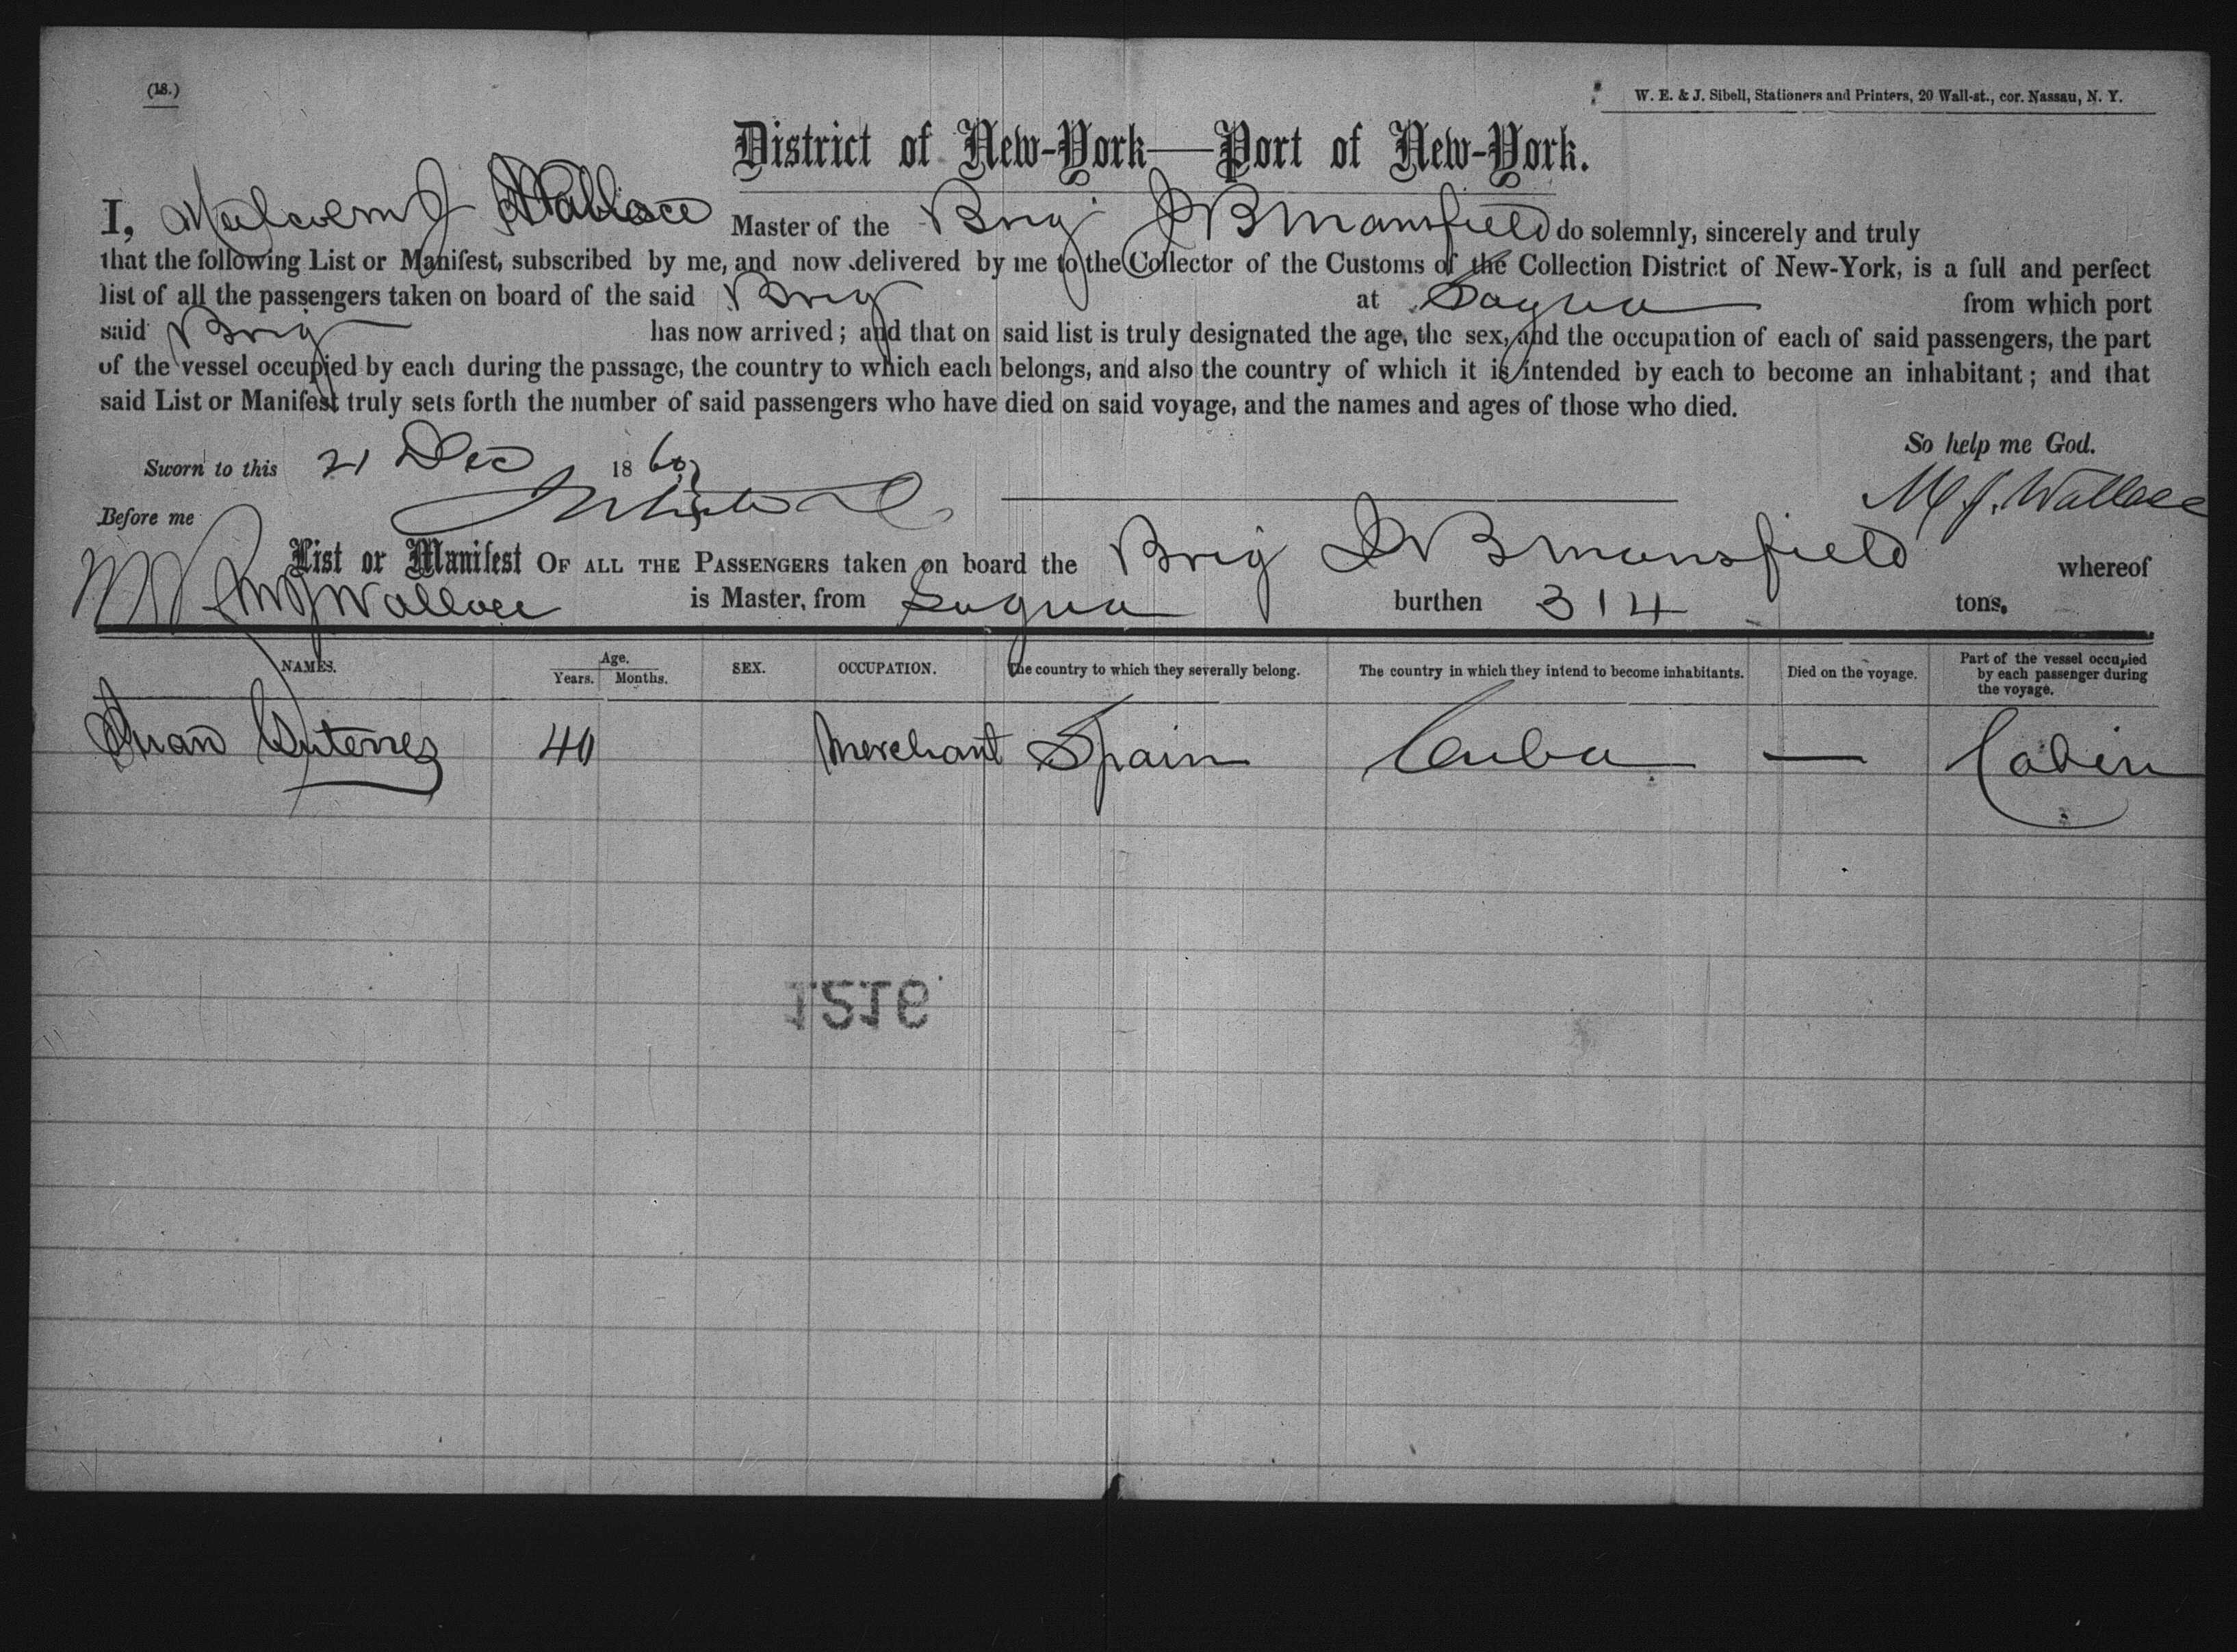 (18.)
W. E. & J. Sibell, Stationers and Printers, 20 Wall-st., cor. Nassau, N. Y.
District of New-York—Port of New-York.
I, Malcolm J Wallace Master of the Brig J B Mansfield do solemnly, sincerely and truly
that the following List or Manifest, subscribed by me, and now delivered by me to the Collector of the Customs of the Collection District of New-York, is a full and perfect
list of all the passengers taken on board of the said Brig at Sagua from which port
said Brig has now arrived; and that on said list is truly designated the age, the sex, and the occupation of each of said passengers, the part
of the vessel occupied by each during the passage, the country to which each belongs, and also the country of which it is intended by each to become an inhabitant; and that
said List or Manifest truly sets forth the number of said passengers who have died on said voyage, and the names and ages of those who died.
So help me God.
Sworn to this 21 Dec 18
M J. Wallace
Before me
List or Manifest OF ALL THE PASSENGERS taken on board the Brig J B Mansfield whereof
M J Wallace is Master, from Sagua burthen 314 tons.
NAMES. Age. Years. Months. SEX. OCCUPATION. The country to which they severally belong. The country in which they intend to become inhabitants. Died on the voyage. Part of the vessel occupied by each passenger during the voyage.
Juan Guterres 40 Merchant Spain Cuba — Cabin
1516